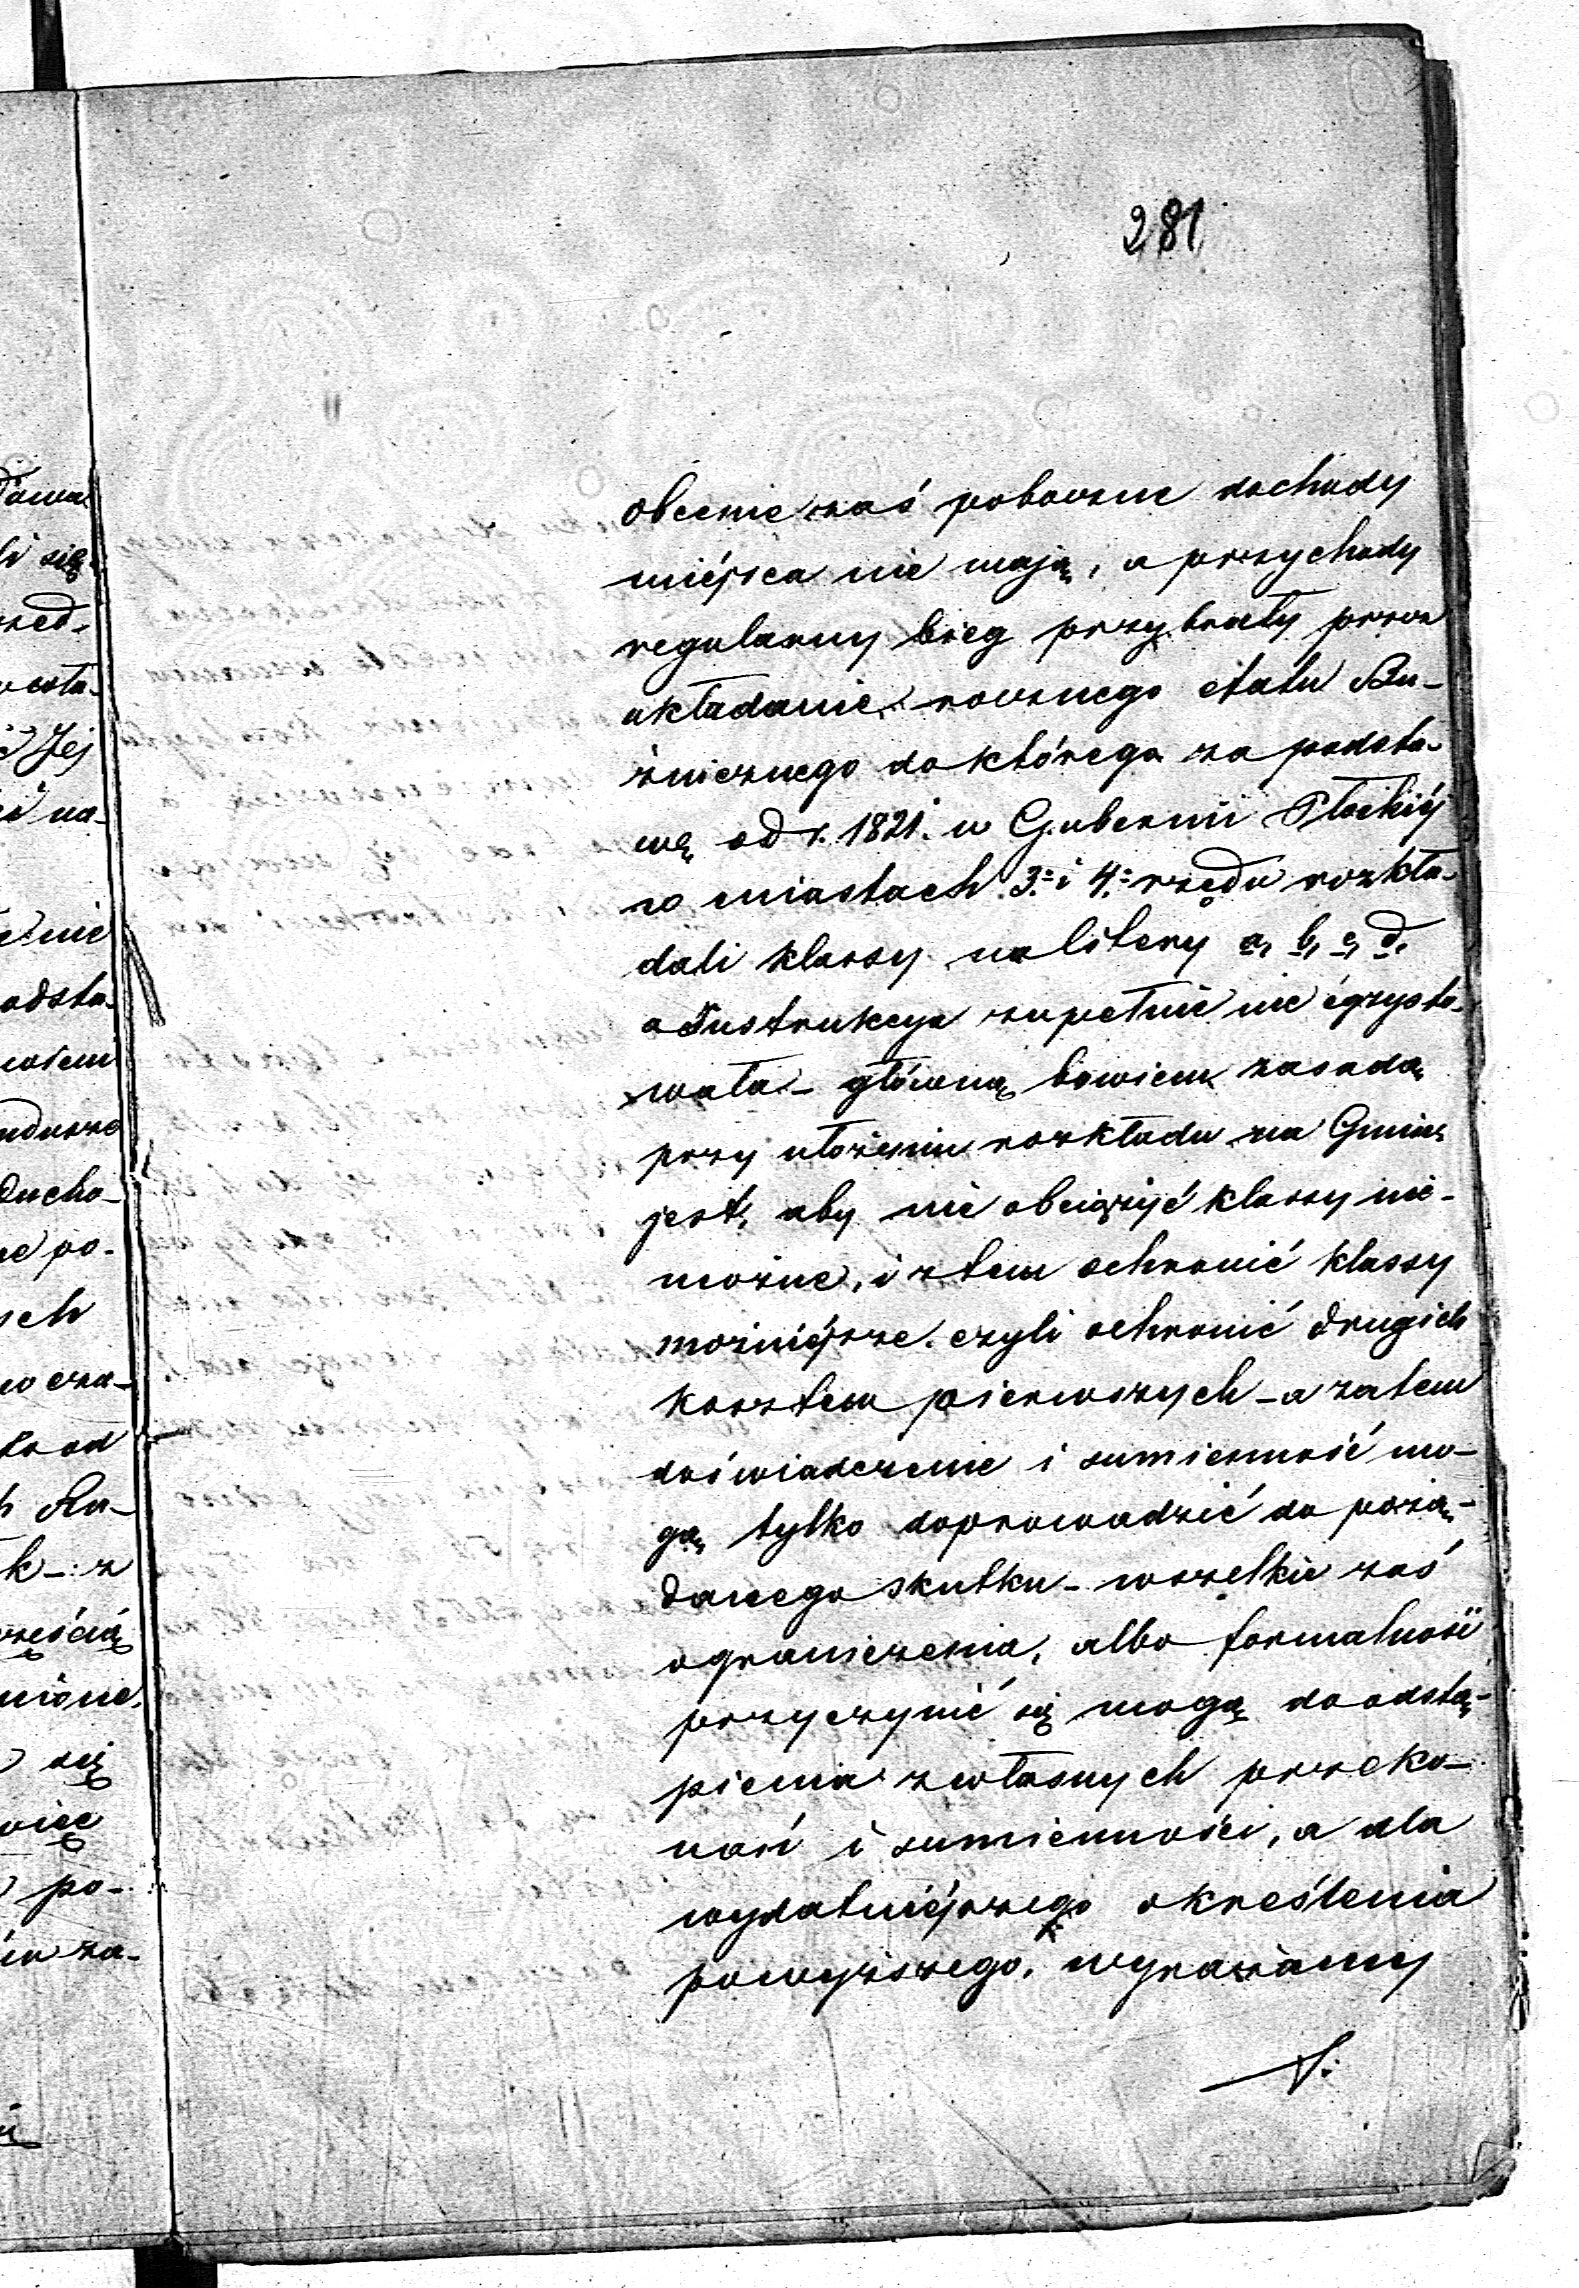 281
obecnie zaś poboczne dochody
miéjsca nie mają, a przychody
regularny bieg przybrały przez
układanie rocznego etatu Bu-
źnicznego do którego za podsta-
wę od r. 1821. w Gubernii Płockiéj
w miastach 3. i 4. rzędu rozkła-
dali klassy na litery a, b, c, d,
a Instrukcya zupełnie nie égzysto-
wała – główną bowiem zasadą
przy ułożeniu rozkładu na Gminę
jest, aby nie obciążyć klassy nie-
możne, i ztem ochronić klassy
możniéjsze, czyli ochronić drugich
kosztem pierwszych – a zatem
doświadczenie i sumienność mo-
gą tylko doprowadzić do pożą-
danego skutku – wszelkie zaś
ograniczenia, albo formalności
przyczynić się mogą do odstą-
pienia z własnych przeko-
nań i sumienności, a dla
wydatniéjszego określenia
powyższego, wyrażamy